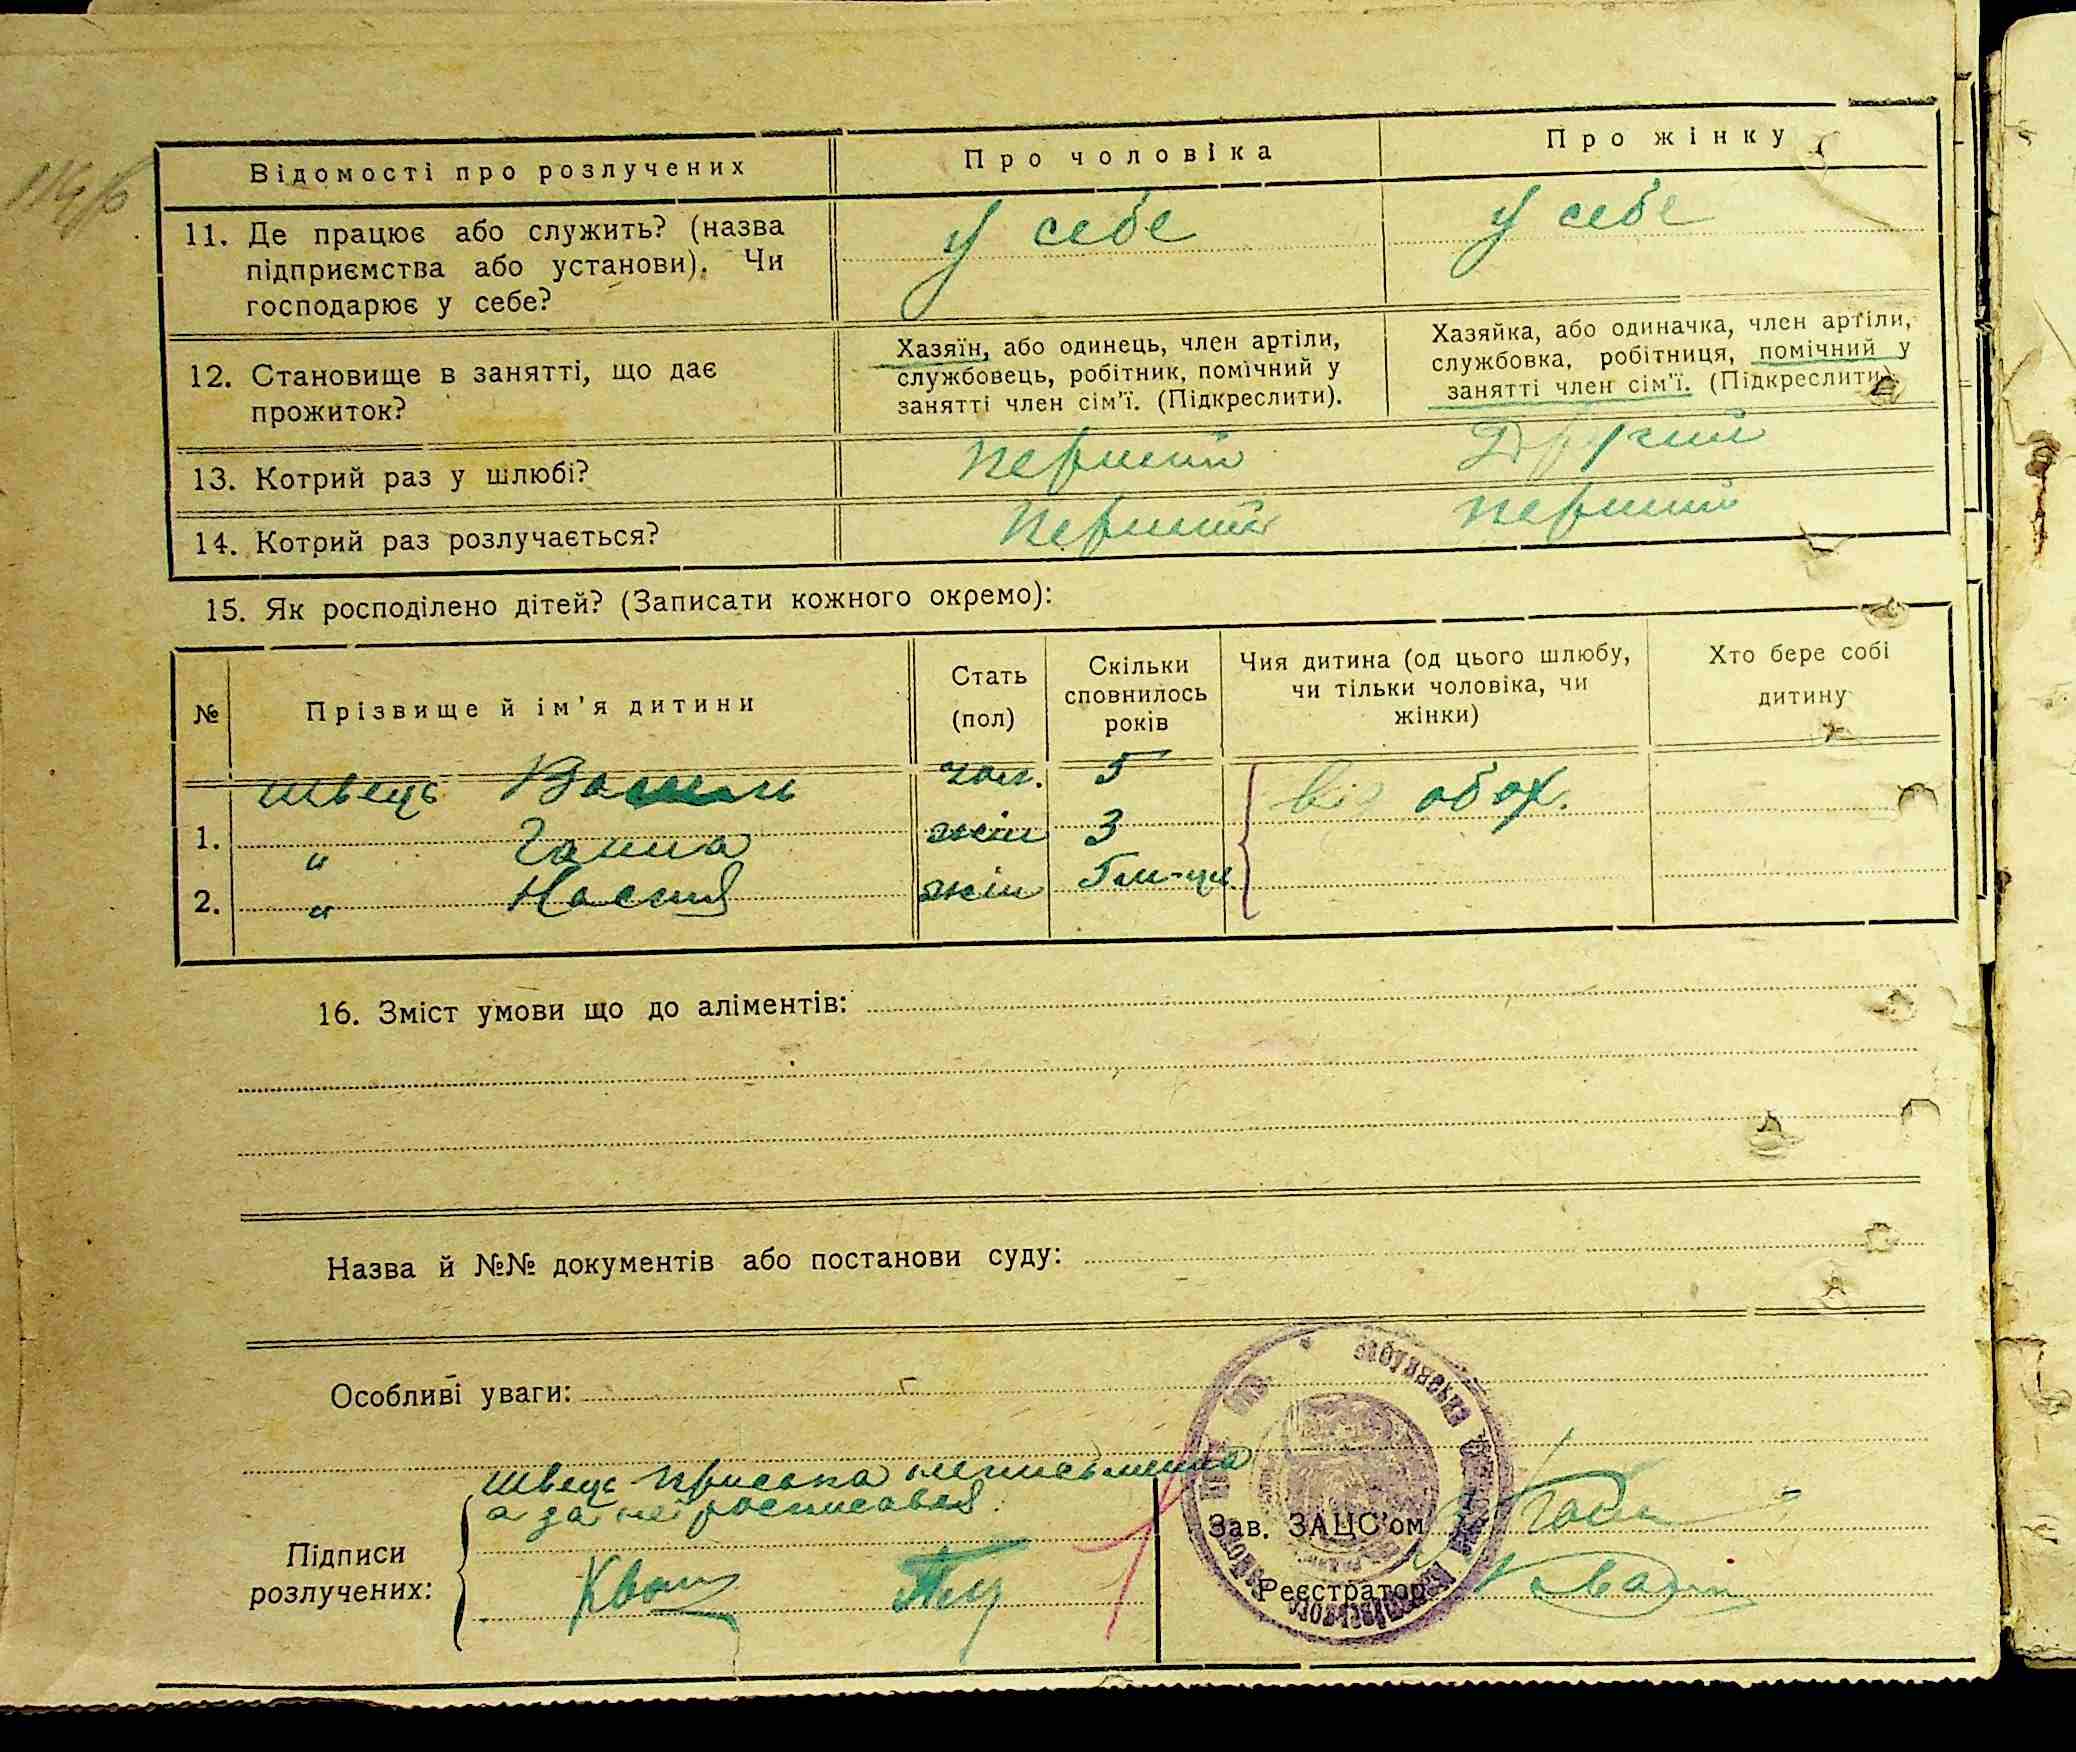 Відомості про розлучених
Про чоловіка
Про жінку
11. Де працює або служить? (назва
підприємства або установи). Чи
господарює у себе?
у себе
у себе
12. Становище в занятті, що дає
прожиток?
Хазяїн, або одинець, член артіли,
службовець, робітник, помічний у
занятті член сім'ї. (Підкреслити).
Хазяйка, або одиначка, член артіли,
службовка, робітниця, помічний у
занятті член сім'ї. (Підкреслити).
13. Котрий раз у шлюбі?
перший
Другий
14. Котрий раз розлучається?
перший
перший
15. Як росподілено дітей? (Записати кожного окремо):
№
Прізвище й ім'я дитини
Стать
(пол)
Скільки
сповнилось
років
Чия дитина (од цього шлюбу,
чи тільки чоловіка, чи
жінки)
Хто бере собі
дитину
Швець Василь чол. 5 від обох.
1. " Ганна жін 3
2. " Настя жін 5 м-ци
16. Зміст умови що до аліментів:
Назва й №№ документів або постанови суду:
Особливі уваги:
Підписи
розлучених:
Швець Приська неписьменна
а за неї росписався
Зав. ЗАЦС'ом
Реєстратор